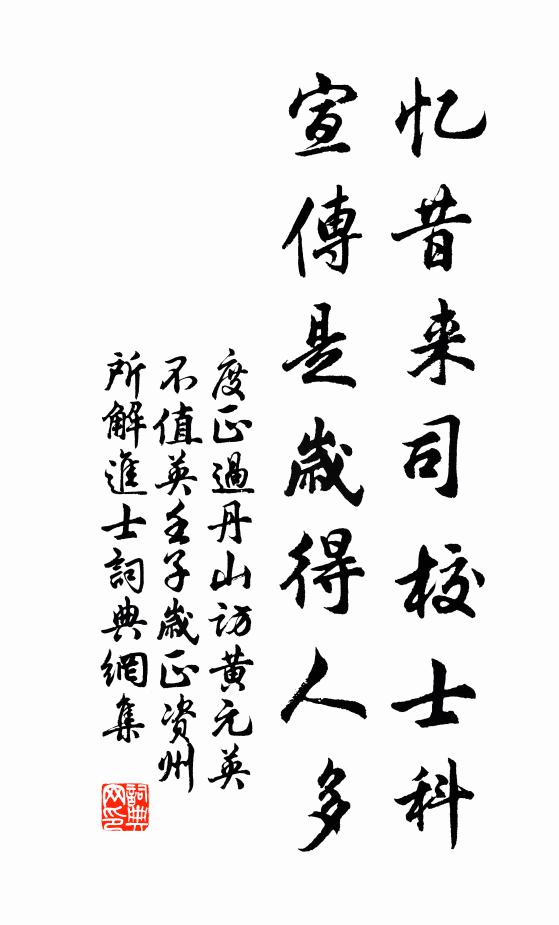 忆昔来司校士科
宣傳是歲得人多
度正過丹山訪黄元英
不值英壬子歲正资州
所解進士詞典網集
詞典網印